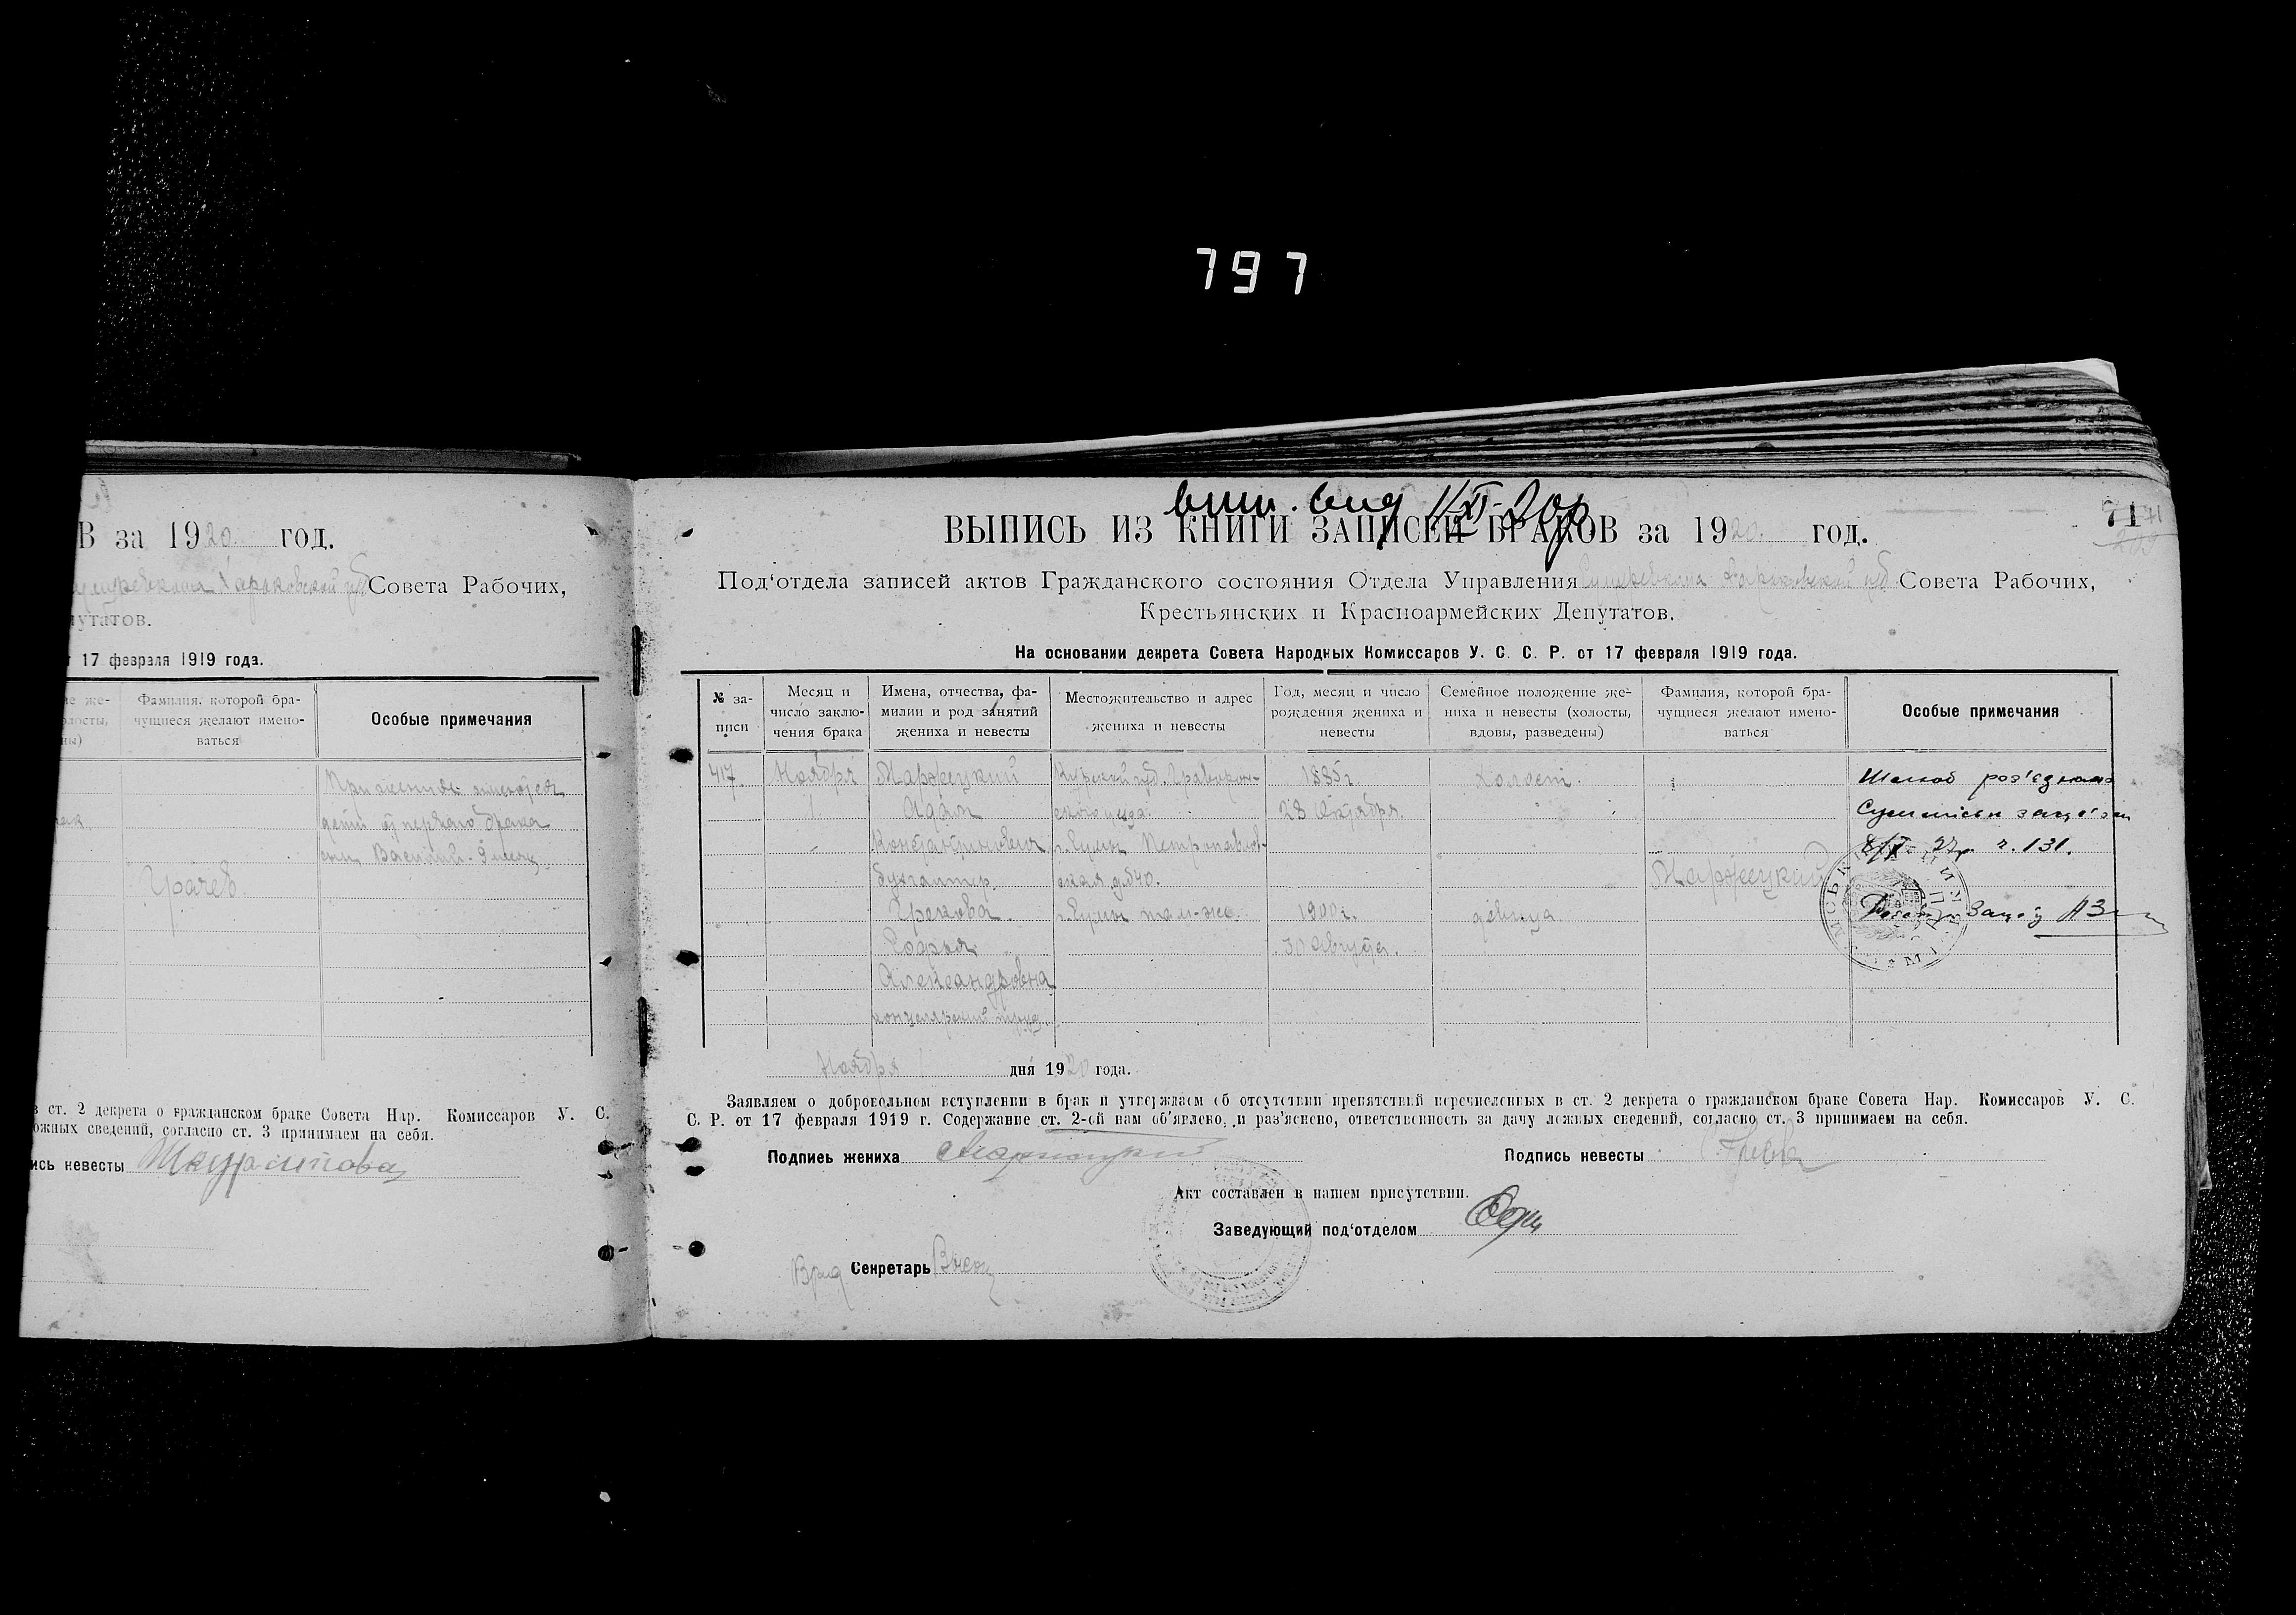 797
В за 1920 год.
Харьковской губ Совета Рабочих,
утатов.
т 17 февраля 1919 года.
Фамилия, которой бра-
чущиеся желают имено-
ваться
Особые примечания
дети от первого брака
сын Василий 9 мес
Грачев.
в ст. 2 декрета о гражданском браке Совета Нар. Комиссаров У. С.
ожных сведений, согласно ст. 3 принимаем на себя.
ись невесты
71
ВЫПИСЬ ИЗ КНИГИ ЗАПИСЕЙ БРАКОВ за 1920 год.
Под‘отдела записей актов Гражданского состояния Отдела Управления Харьковской губ Совета Рабочих,
Крестьянских и Красноармейских Депутатов.
На основании декрета Совета Народных Комиссаров У. С. С. Р. от 17 февраля 1919 года.
№ за-
писи
Месяц и
число заклю-
чения брака
Имена, отчества, фа-
милии и род занятий
жениха и невесты
Местожительство и адрес
жениха и невесты
Год, месяц и число
рождения жениха и
невесты
Семейное положение же-
ниха и невесты (холосты,
вдовы, разведены)
Фамилия, которой бра-
чущиеся желают имено-
ваться
Особые примечания
417
Ноября
1
Маржецкий
Адам
Константинович
бухгалтер
Грекова
Софья
Александровна
Курской губ. Грайворон-
ского уезда
г. Сумы Петропавлов-
ская д. №40.
г. Сумы там-же
1885 г.
28 Октября.
1900 г.
30 Августа.
Холост.
девица
Маржецкий
Шлюб роз'єднано
ч. 131.
Ноября 1 дня 1920 года.
Заявляем о добровольном вступлении в брак и утверждаем об отсутствии препятствий перечисленных в ст. 2 декрета о гражданском браке Совета Нар. Комиссаров У. С.
С. Р. от 17 февраля 1919 г. Содержание ст. 2-ой нам об‘явлено, и раз‘яснено, ответственность за дачу ложных сведений, согласно ст. 3 принимаем на себя.
Подпись жениха
Подпись невесты
Акт составлен в нашем присутствии.
Заведующий под‘отделом
Секретарь